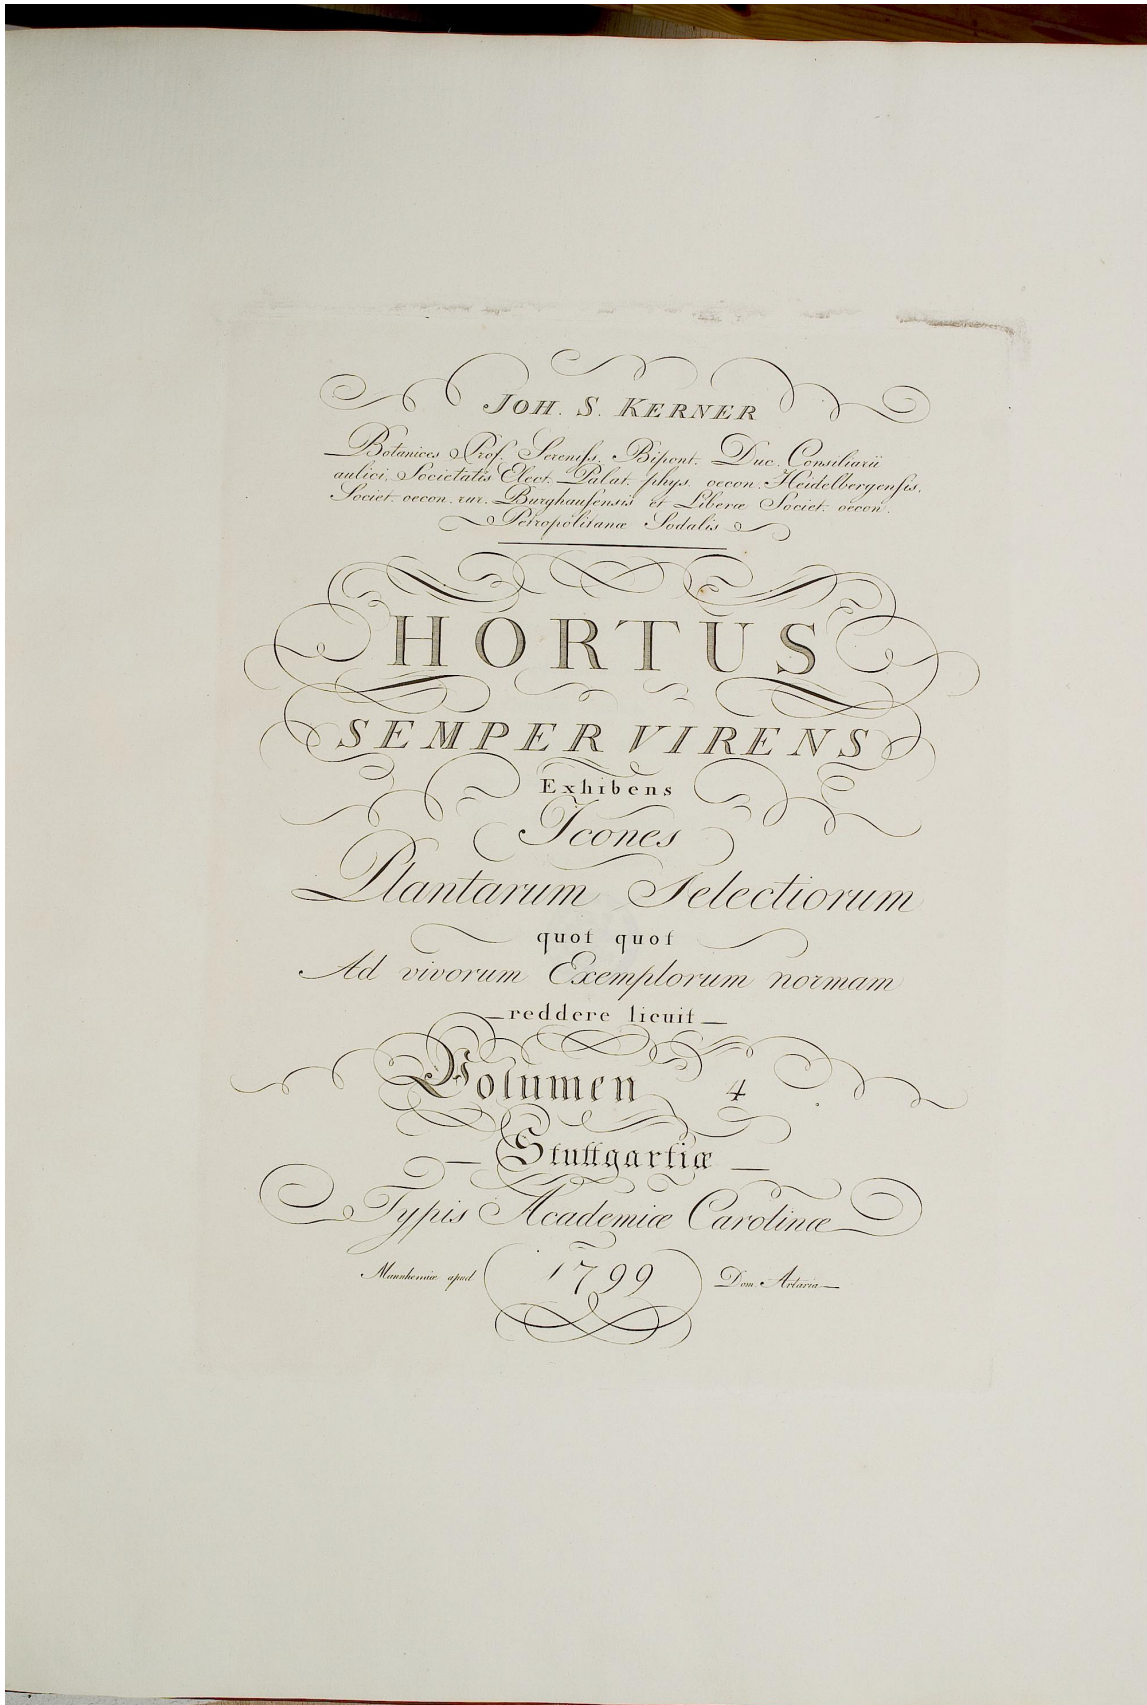 JOH. S. KERNER
Botanices Prof. Sereniſs. Bipont. Duc. Consiliarii
aulici, Societatis Elect. Palat. phys. oecon. Heidelbergenſis,
Societ. oecon. rur. Burghauſensis et Liberæ Societ. oecon.
Petropolitanæ Sodalis
HORTUS
SEMPER VIRENS
Exhibens
Icones
Plantarum Selectiorum
quot quot
Ad vivorum Exemplorum normam
—reddere licuit—
Volumen 4
— Stuttgartiæ —
Typis Academiæ Carolinæ
Mannhemiæ apud 1799 Dom. Artaria—